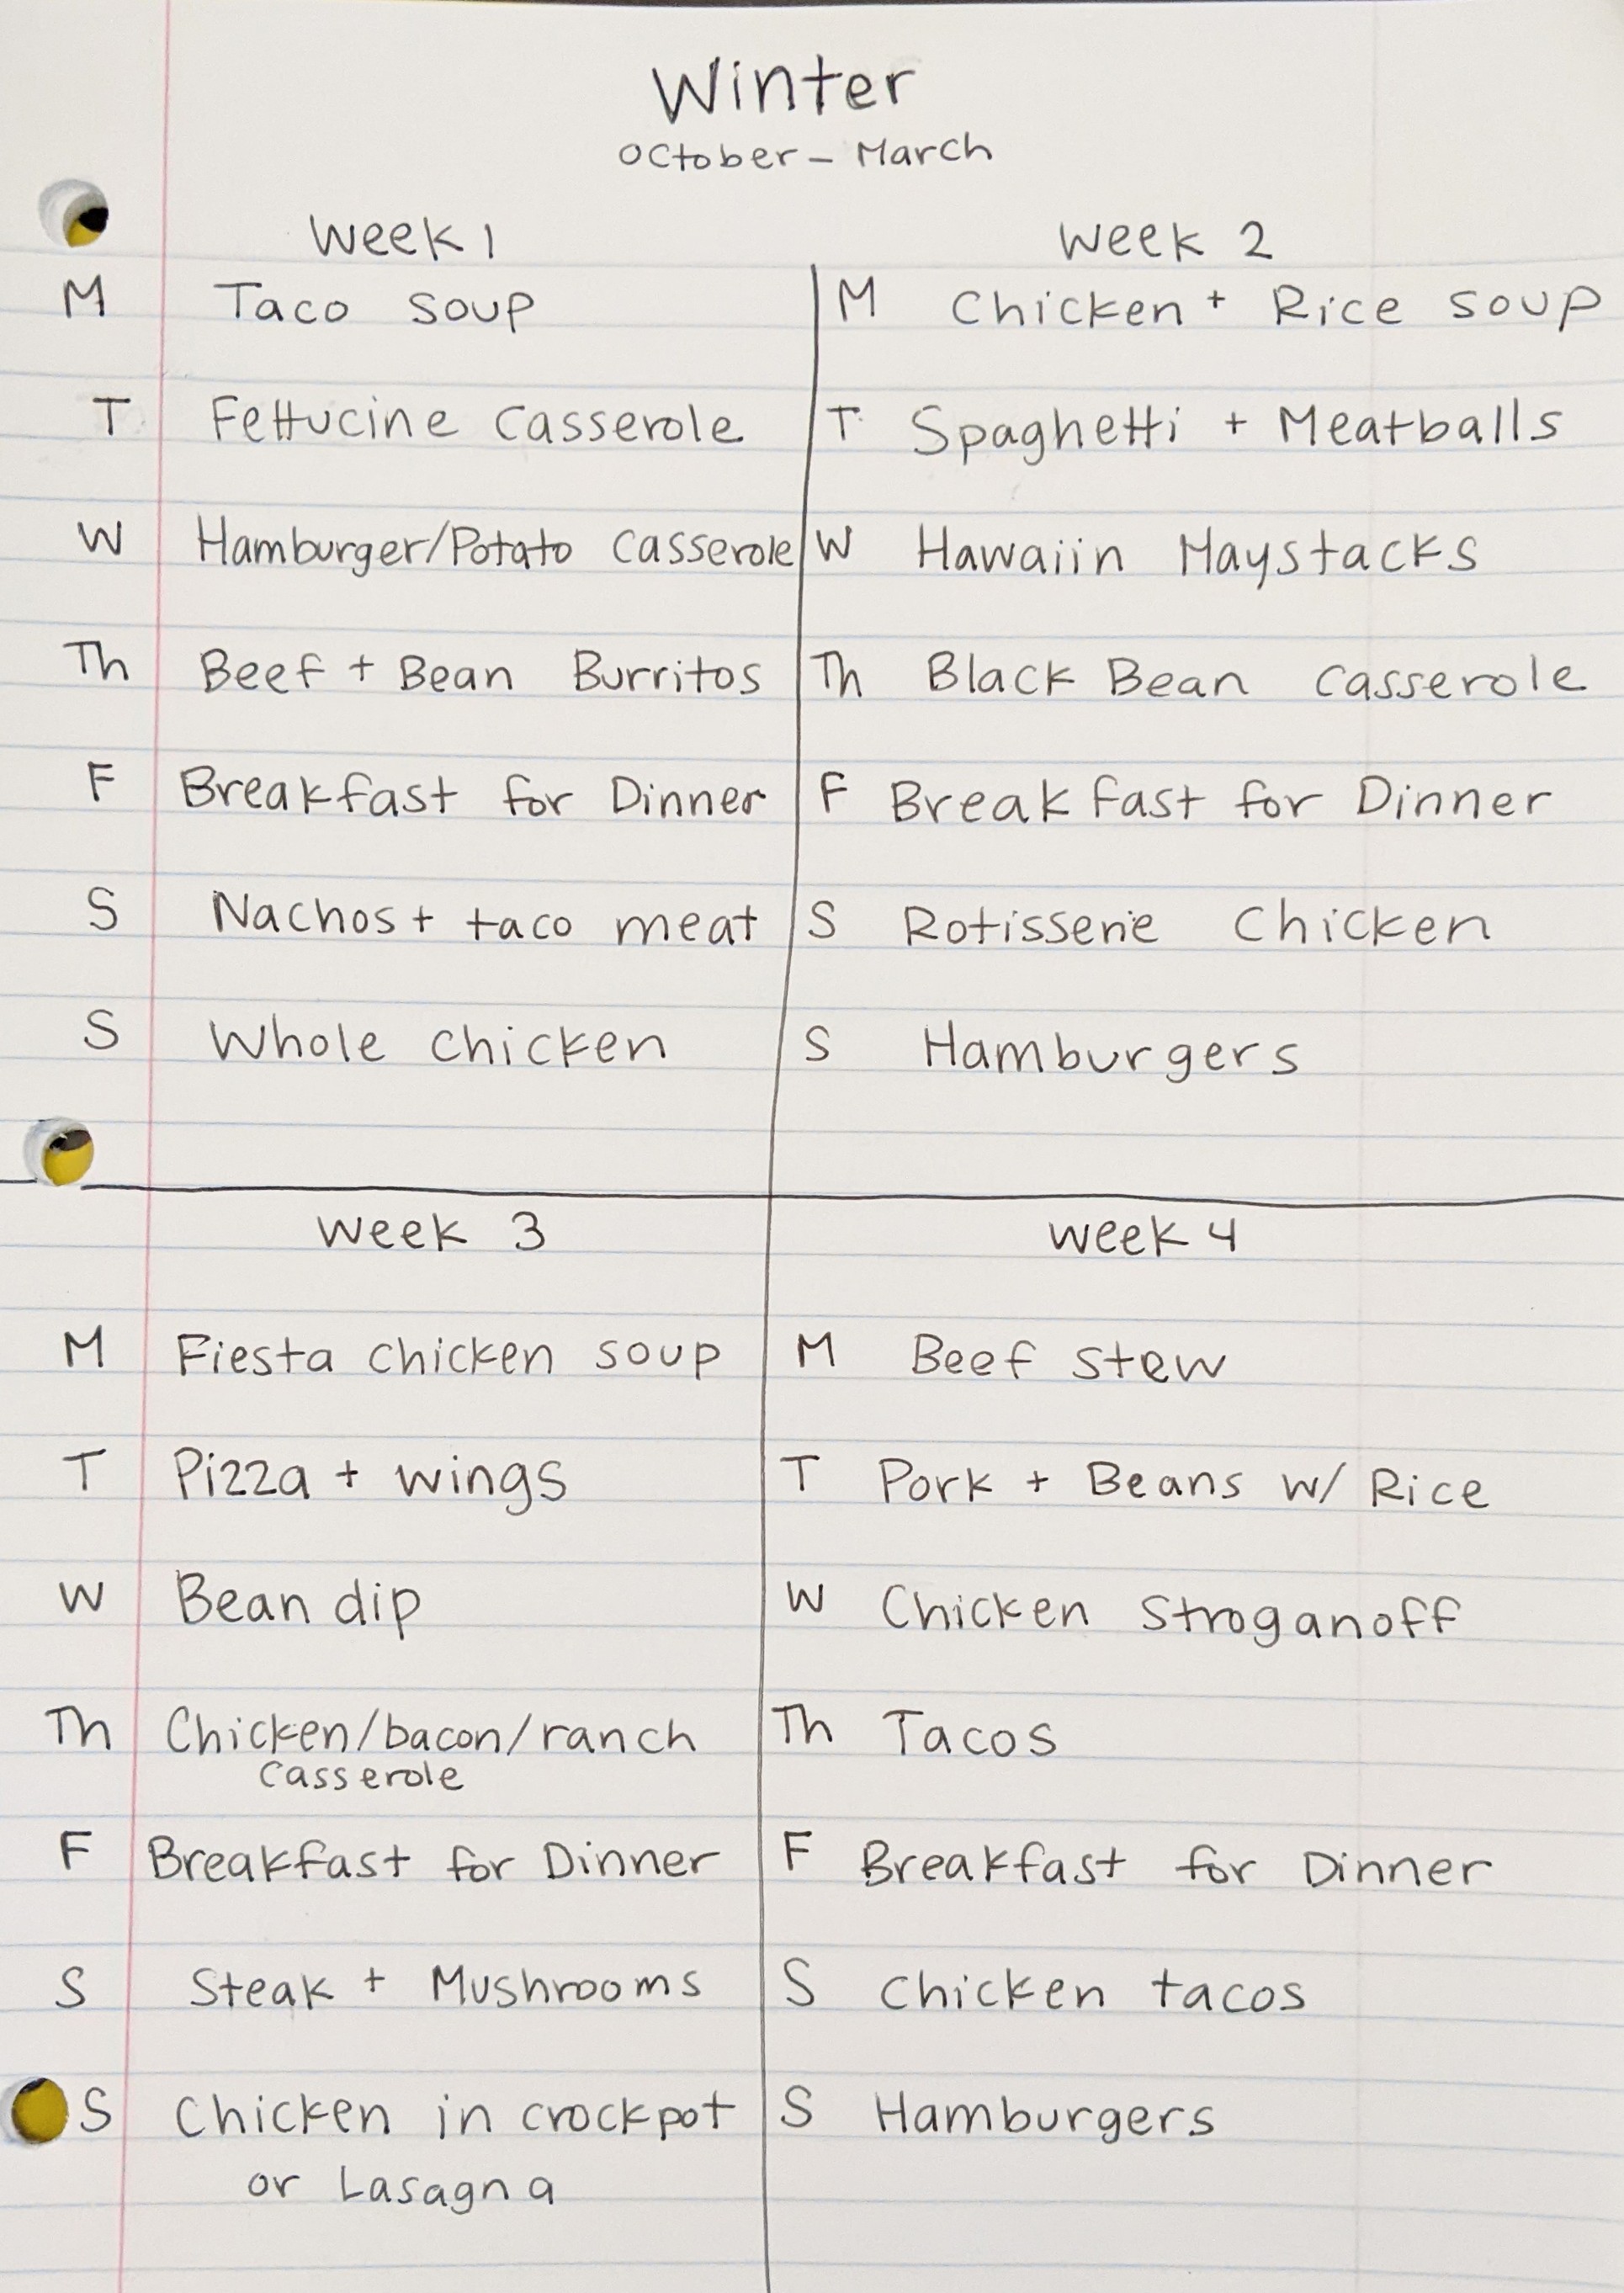 Winter
October - March
Week 1
M Taco soup
T Fettucine Casserole
W Hamburger/Potato Casserole
Th Beef + Bean Burritos
F Breakfast for Dinner
S Nachos + taco meat
S Whole chicken
Week 2
M Chicken + Rice soup
T Spaghetti + Meatballs
W Hawaiin Haystacks
Th Black Bean Casserole
F Breakfast for Dinner
S Rotisserie Chicken
S Hamburgers
Week 3
M Fiesta chicken soup
T Pizza + wings
W Bean dip
Th Chicken/bacon/ranch
Casserole
F Breakfast for Dinner
S Steak + Mushrooms
S Chicken in crockpot
or Lasagna
Week 4
M Beef stew
T Pork + Beans w/ Rice
W Chicken Stroganoff
Th Tacos
F Breakfast for Dinner
S Chicken tacos
S Hamburgers